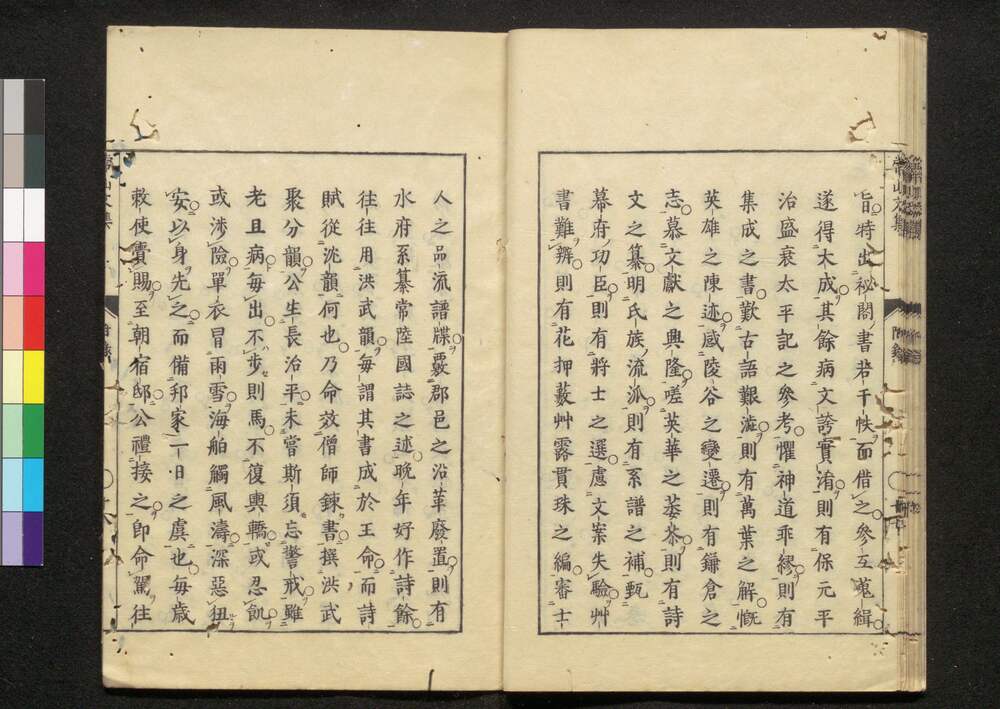 旨特出祕閣書若干帙而借之參互蒐緝
遂得大成其餘病文誇實淆則有保元平
治盛衰太平記之參考懼神道乖繆則有
集成之書歎古語艱澁則有萬葉之解慨
英雄之陳迹感陵谷之變遷則有鎌倉之
志慕文獻之興隆嗟英華之菶菶則有詩
文之纂明氏族流派則有系譜之補甄
幕府功臣則有將士之選慮文案失驗艸
書難辨則有花押藪艸露貫珠之編審士
人之品流譜牒覈郡邑之沿革廢置則有
水府系纂常陸國誌之述晚年好作詩餘
往往用洪武韻每謂其書成於王命而詩
賦從沈韻何也乃命效僧師鍊書撰洪武
聚分韻公生長治平未嘗斯須忘警戒雖
老且病每出不步則馬不復輿轎或忍飢
或涉險單衣冒雨雪海舶觸風濤深惡狃
安以身先之而備邦家一日之虞也每歲
敕使賚賜至朝宿邸公禮接之卽命駕往
常山文集
附錄